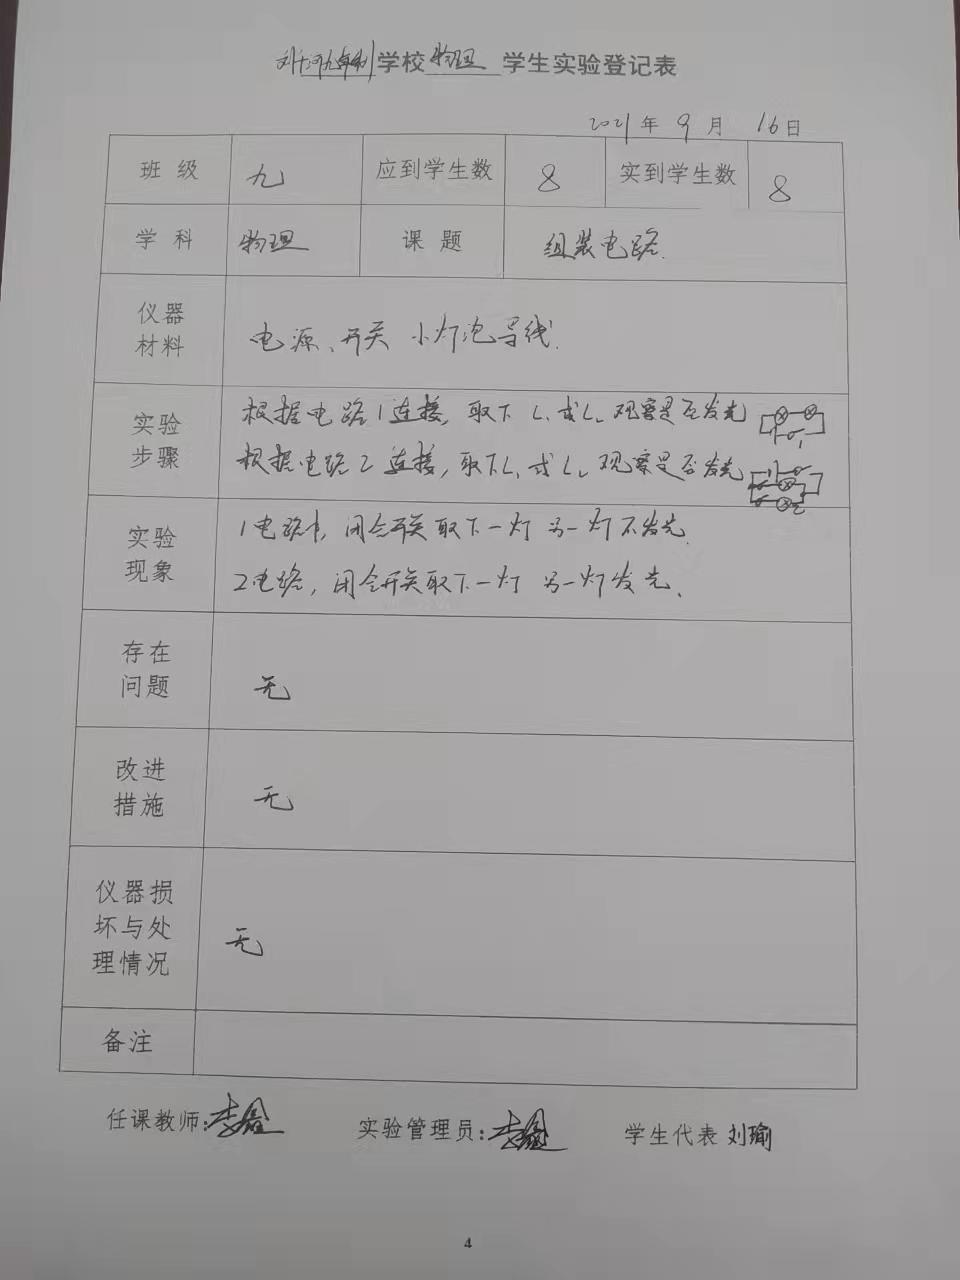 刘大河九年制学校物理学生实验登记表
2021年9月16日
班级 九 应到学生数 8 实到学生数 8
学科 物理 课题 组装电路.
仪器材料 电源、开关 小灯泡导线.
实验步骤 根据电路1连接,取下L1或L2观察是否发光 1
根据电路2连接,取下L1或L2观察是否发光 2
实验现象 1电路中,闭合开关取下一灯 另一灯不发光.
2电路,闭合开关取下一灯 另一灯发光.
存在问题 无
改进措施 无
仪器损坏与处理情况 无
备注
任课教师: 实验管理员: 学生代表 刘瑜
4